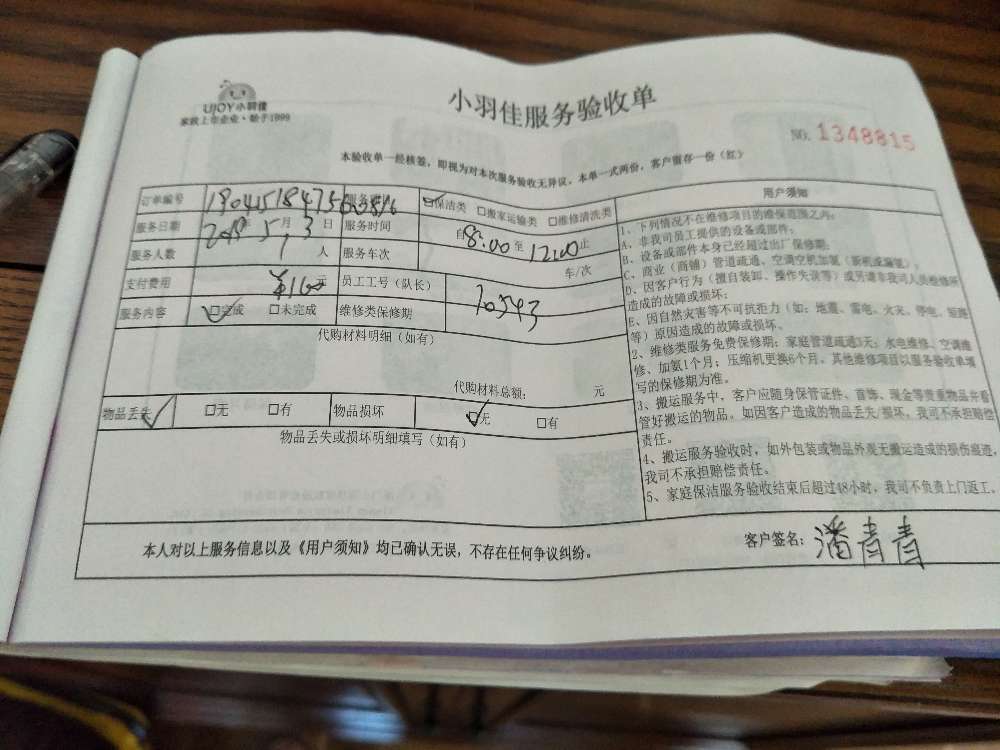 UJOY小羽佳
家政上市企业·始于1999
小羽佳服务验收单
NO. 1348815
本验收单一经核签,即视为对本次服务验收无异议,本单一式两份,客户留存一份(红)
订单编号
保洁类 □搬家运输类 □维修清洗类
服务日期 年 5 月 3 日 服务时间 自 8:00 至 12:00 止
服务人数 人 服务车次 车/次
支付费用 元 员工工号(队长)
服务内容 完成 □未完成 维修类保修期
代购材料明细(如有)
代购材料总额: 元
物品丢失 □无 □有 物品损坏 无 □有
物品丢失或损坏明细填写(如有)
用户须知
1、下列情况不在维修项目的维保范围之内:
A、非我司员工提供的设备或部件;
B、设备或部件本身已经超过出厂保修期;
C、商业(商铺)管道疏通、空调空机加氨(新机或漏氨);
D、因客户行为(擅自装卸、操作失误等)或另请非我司人员维修所
造成的故障或损坏;
E、因自然灾害等不可抗拒力(如:地震、雷电、火灾、停电、短路
等)原因造成的故障或损坏。
2、维修类服务免费保修期:家庭管道疏通3天;水电维修、空调维
修、加氨1个月;压缩机更换6个月。其他维修项目以服务验收单填
写的保修期为准。
3、搬运服务中,客户应随身保管证件、首饰、现金等贵重物品并看
管好搬运的物品。如因客户造成的物品丢失/损坏,我司不承担赔偿
责任。
4、搬运服务验收时,如外包装或物品外观无搬运造成的损伤痕迹,
我司不承担赔偿责任。
5、家庭保洁服务验收结束后超过48小时,我司不负责上门返工。
本人对以上服务信息以及《用户须知》均已确认无误,不存在任何争议纠纷。
客户签名:潘青青